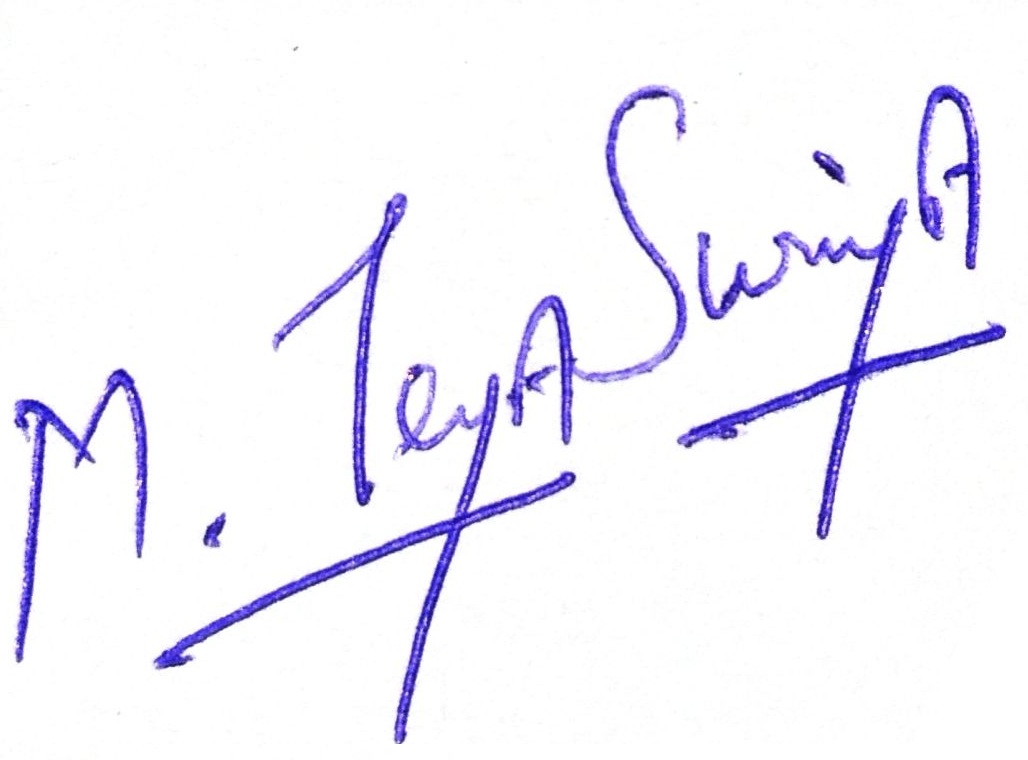 M. TeyA SwriyA